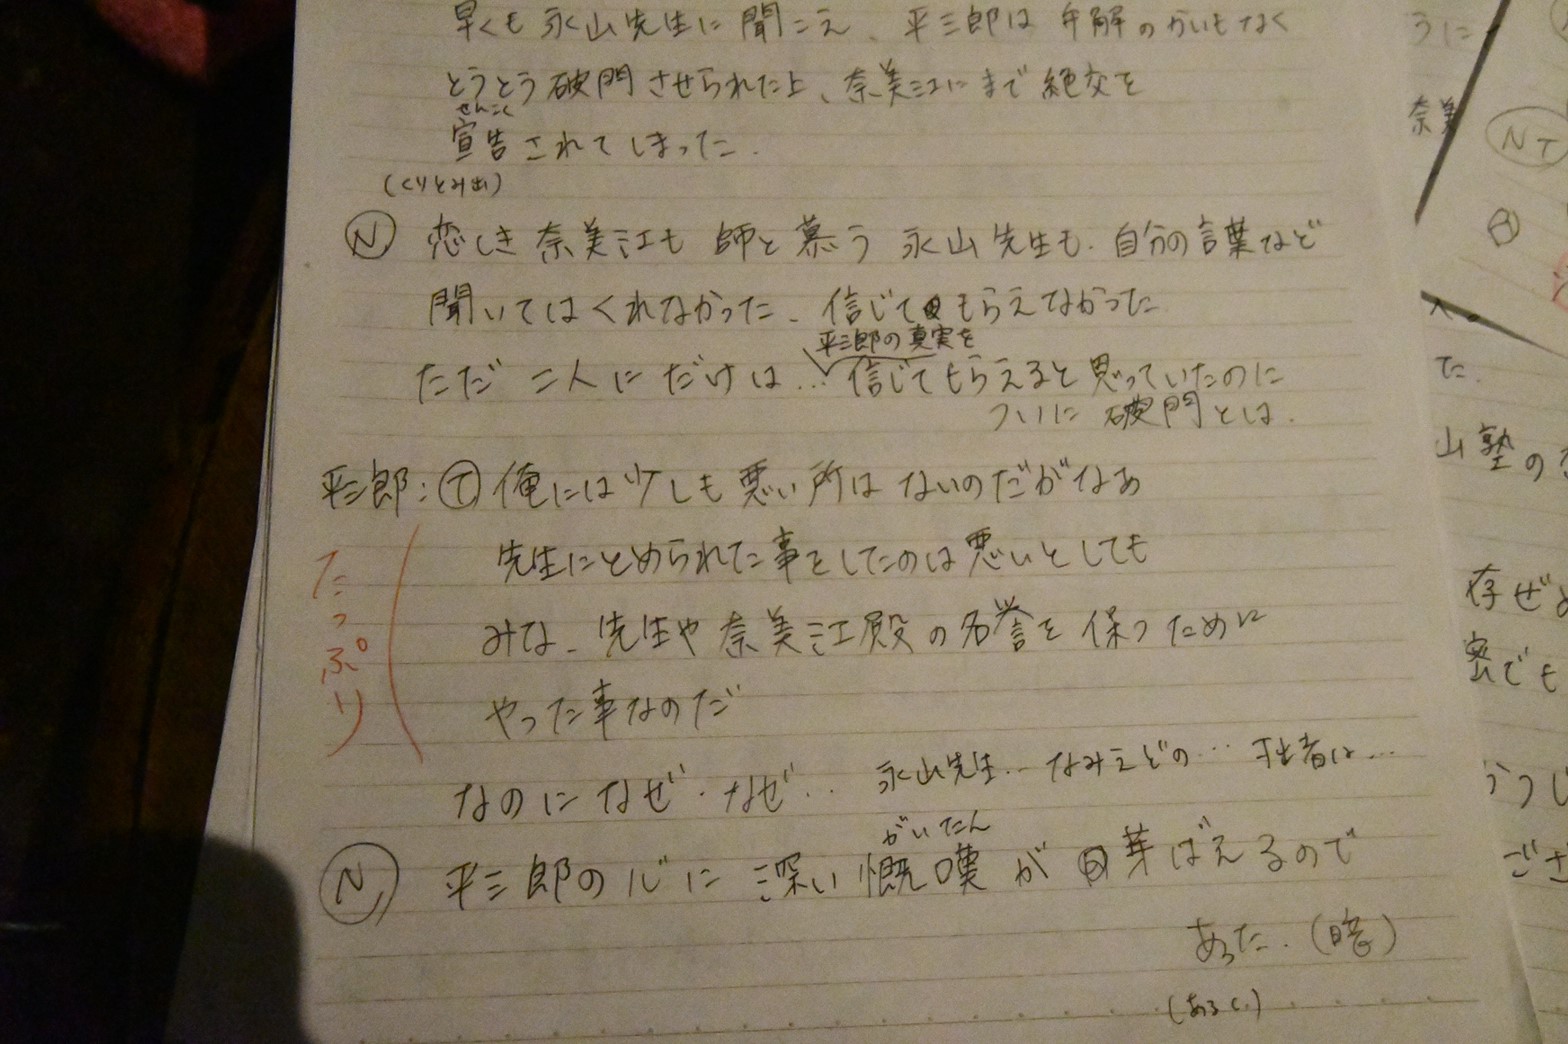 早くも永山先生に聞こえ、平三郎は弁解のかいもなく
とうとう破門させられた上、奈美江にまで絶交を
せんこく
宣告されてしまった.
(くりとみ出)
N 恋しき奈美江も 師と慕う 永山先生も. 自分の言葉など
聞いてはくれなかった. 信じてもらえなかった
平三郎の真実を
ただ 二人にだけは… 信じてもらえると思っていたのに
ついに破門とは.
平三郎:T 俺には少しも悪い所はないのだがなあ
先生にとめられた事をしたのは悪いとしても
みな、先生や奈美江殿の名誉を保つために
やった事なのだ
たっぷり
なのになぜ・なぜ… 永山先生… なみえどの… 拙者は…
がいたん
N 平三郎の心に深い慨嘆が芽ばえるので
あった.(暗)
(あると)
うに
奈美
NT
た.
山塾の
存ぜ
密でも
ござ